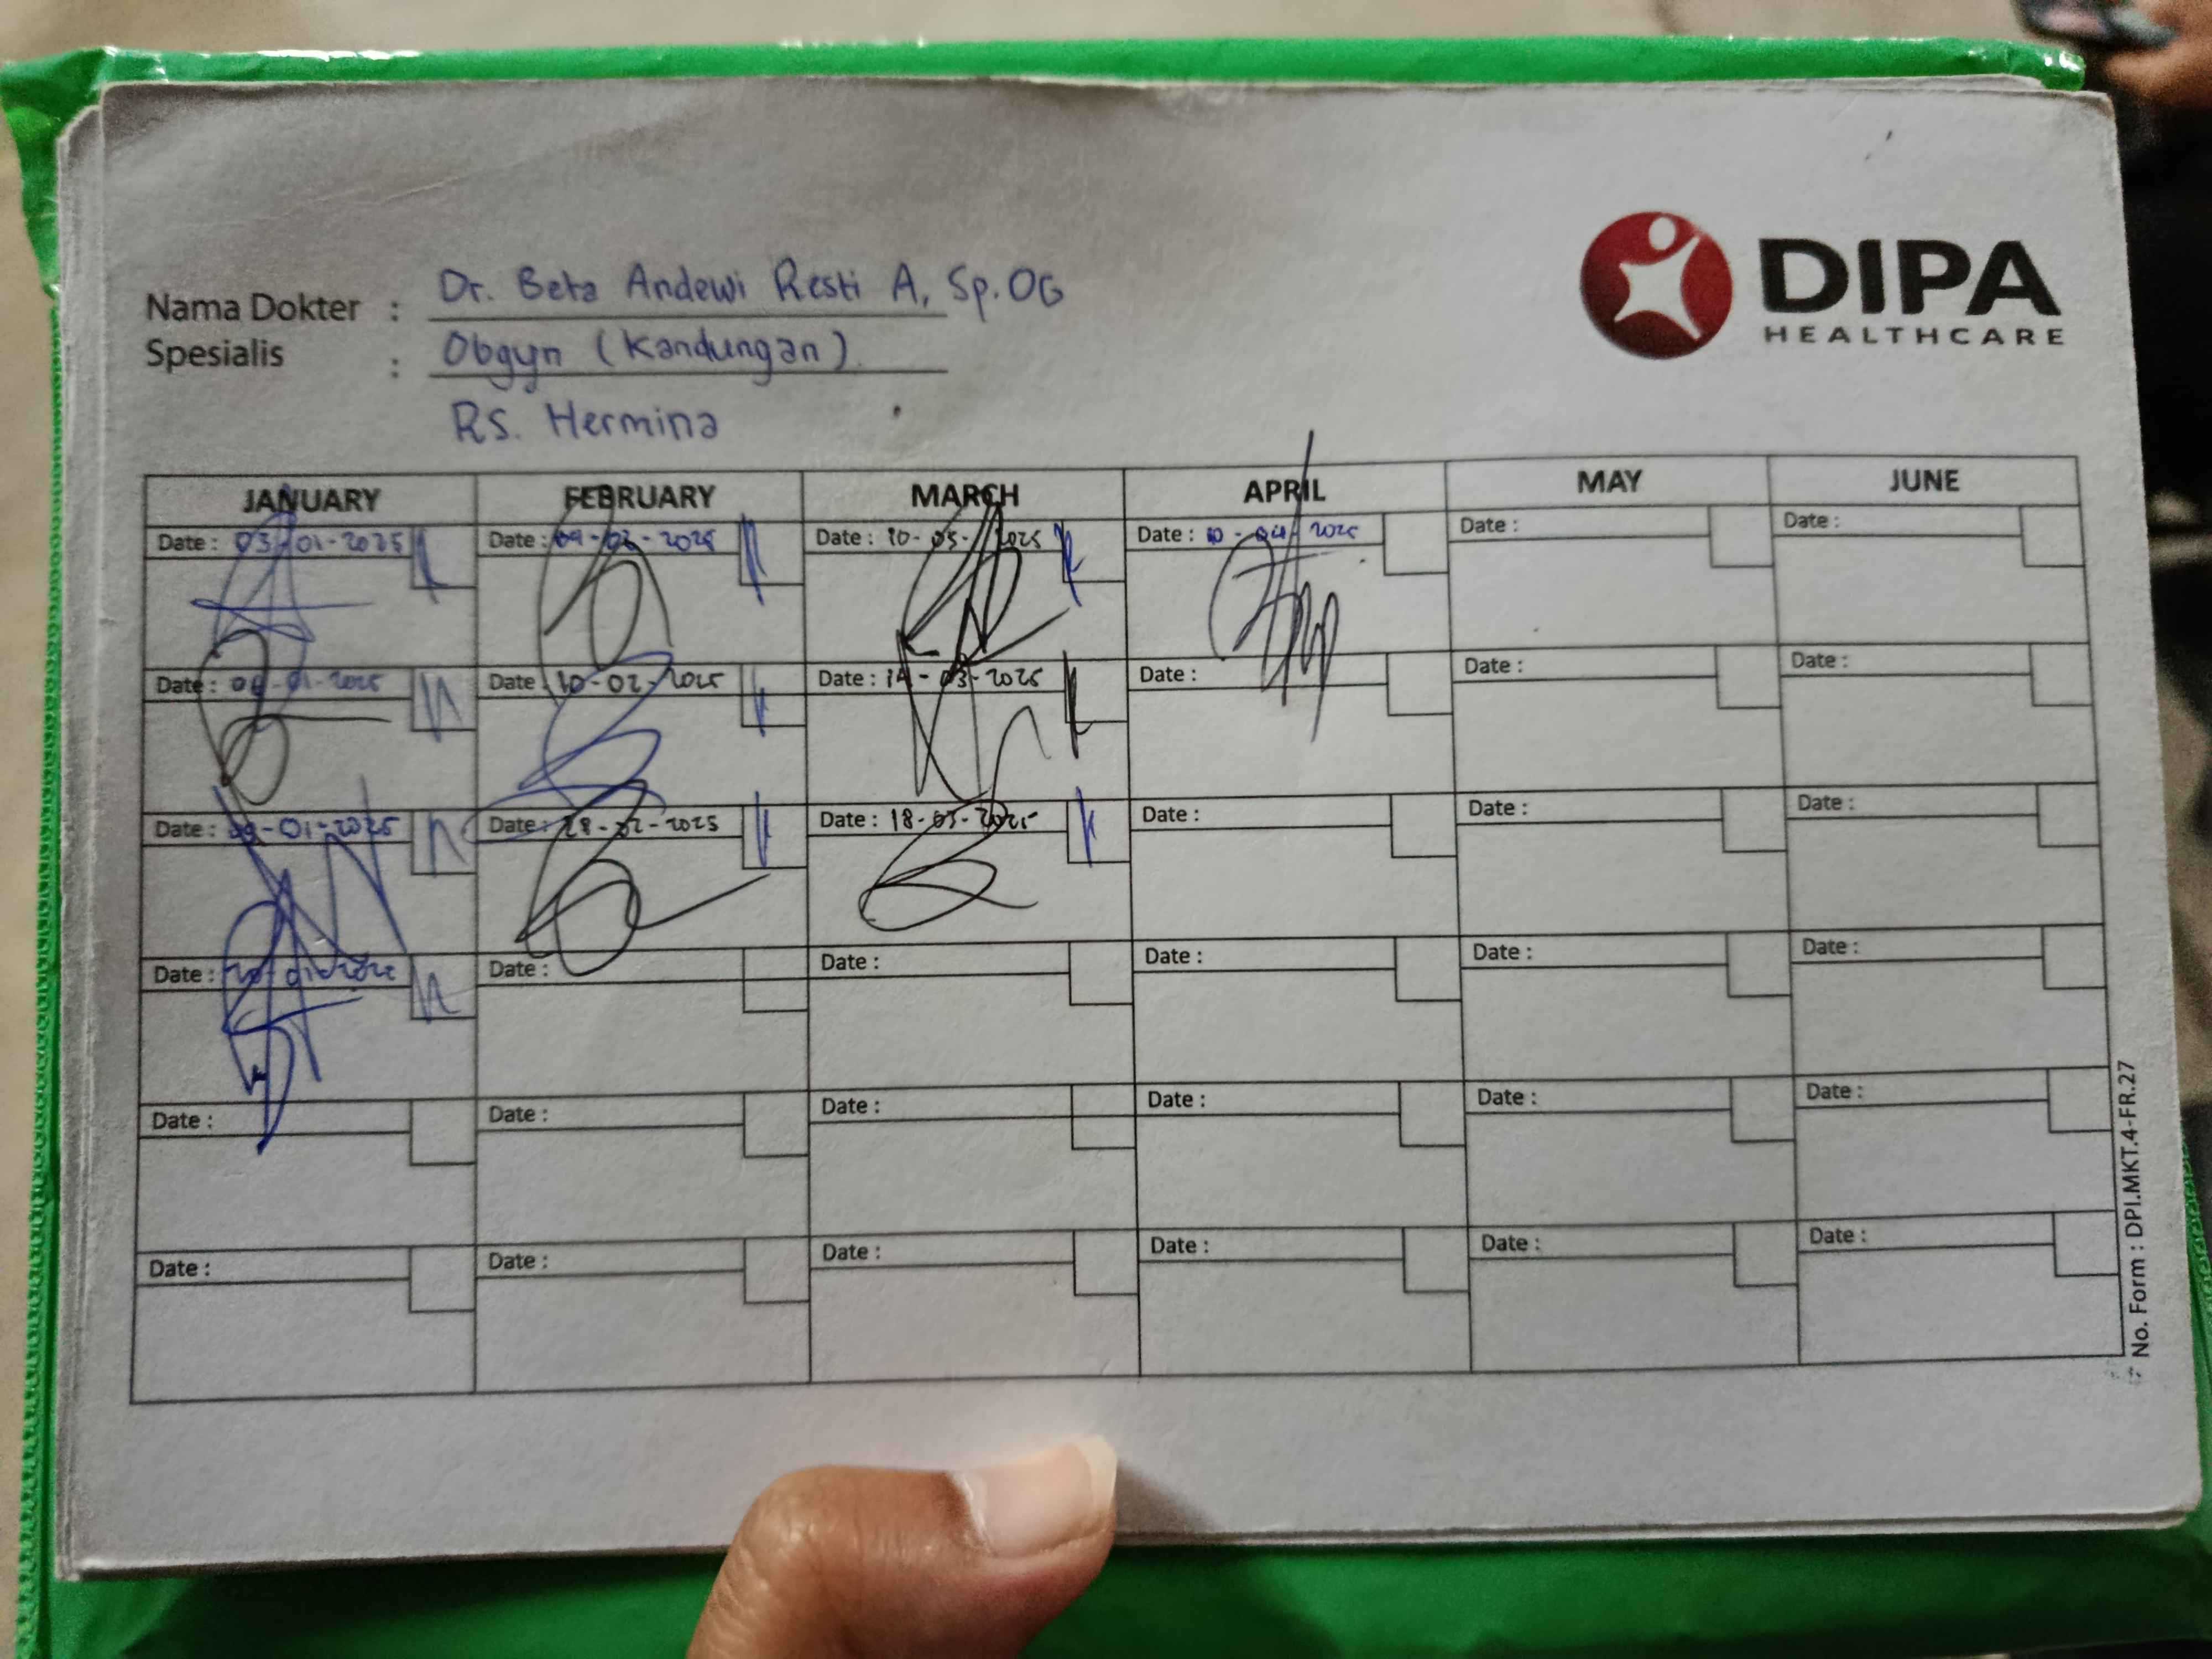 DIPA
HEALTHCARE
Nama Dokter : Dr. Beta Andewi Resti A, Sp.OG
Spesialis : Obgyn (Kandungan)
RS. Hermina
JANUARY FEBRUARY MARCH APRIL MAY JUNE
Date : 03-01-2025 Date : 04-02-2025 Date : 10-03-2025 Date : 10-04-2025 Date : Date :
Date : 06-01-2025 Date : 10-02-2025 Date : 14-03-2025 Date : Date : Date :
Date : 09-01-2025 Date : 28-02-2025 Date : 18-03-2025 Date : Date : Date :
Date : Date : Date : Date : Date : Date :
Date : Date : Date : Date : Date : Date :
Date : Date : Date : Date : Date : Date :
No. Form : DPI.MKT.4-FR.27